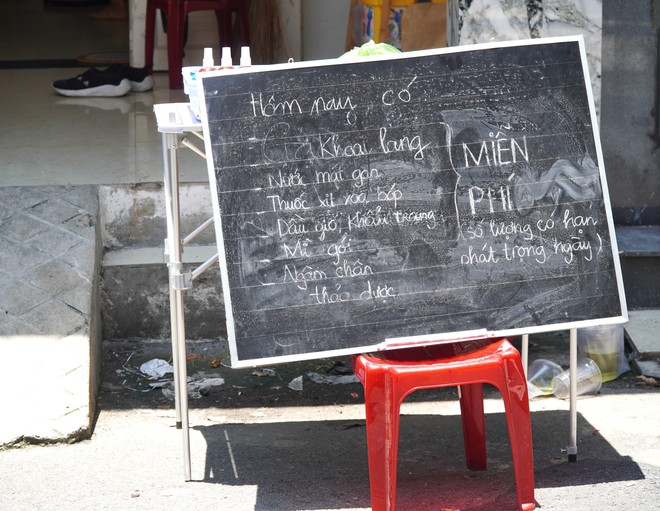 Hôm nay có
- Khoai lang
- Nước mát gan
- Thuốc xịt xoa bóp
- Dầu gió, Khẩu trang
- Mì gói
- Ngâm chân
thảo dược
MIỄN
PHÍ
(số lượng có hạn
phát trong ngày)